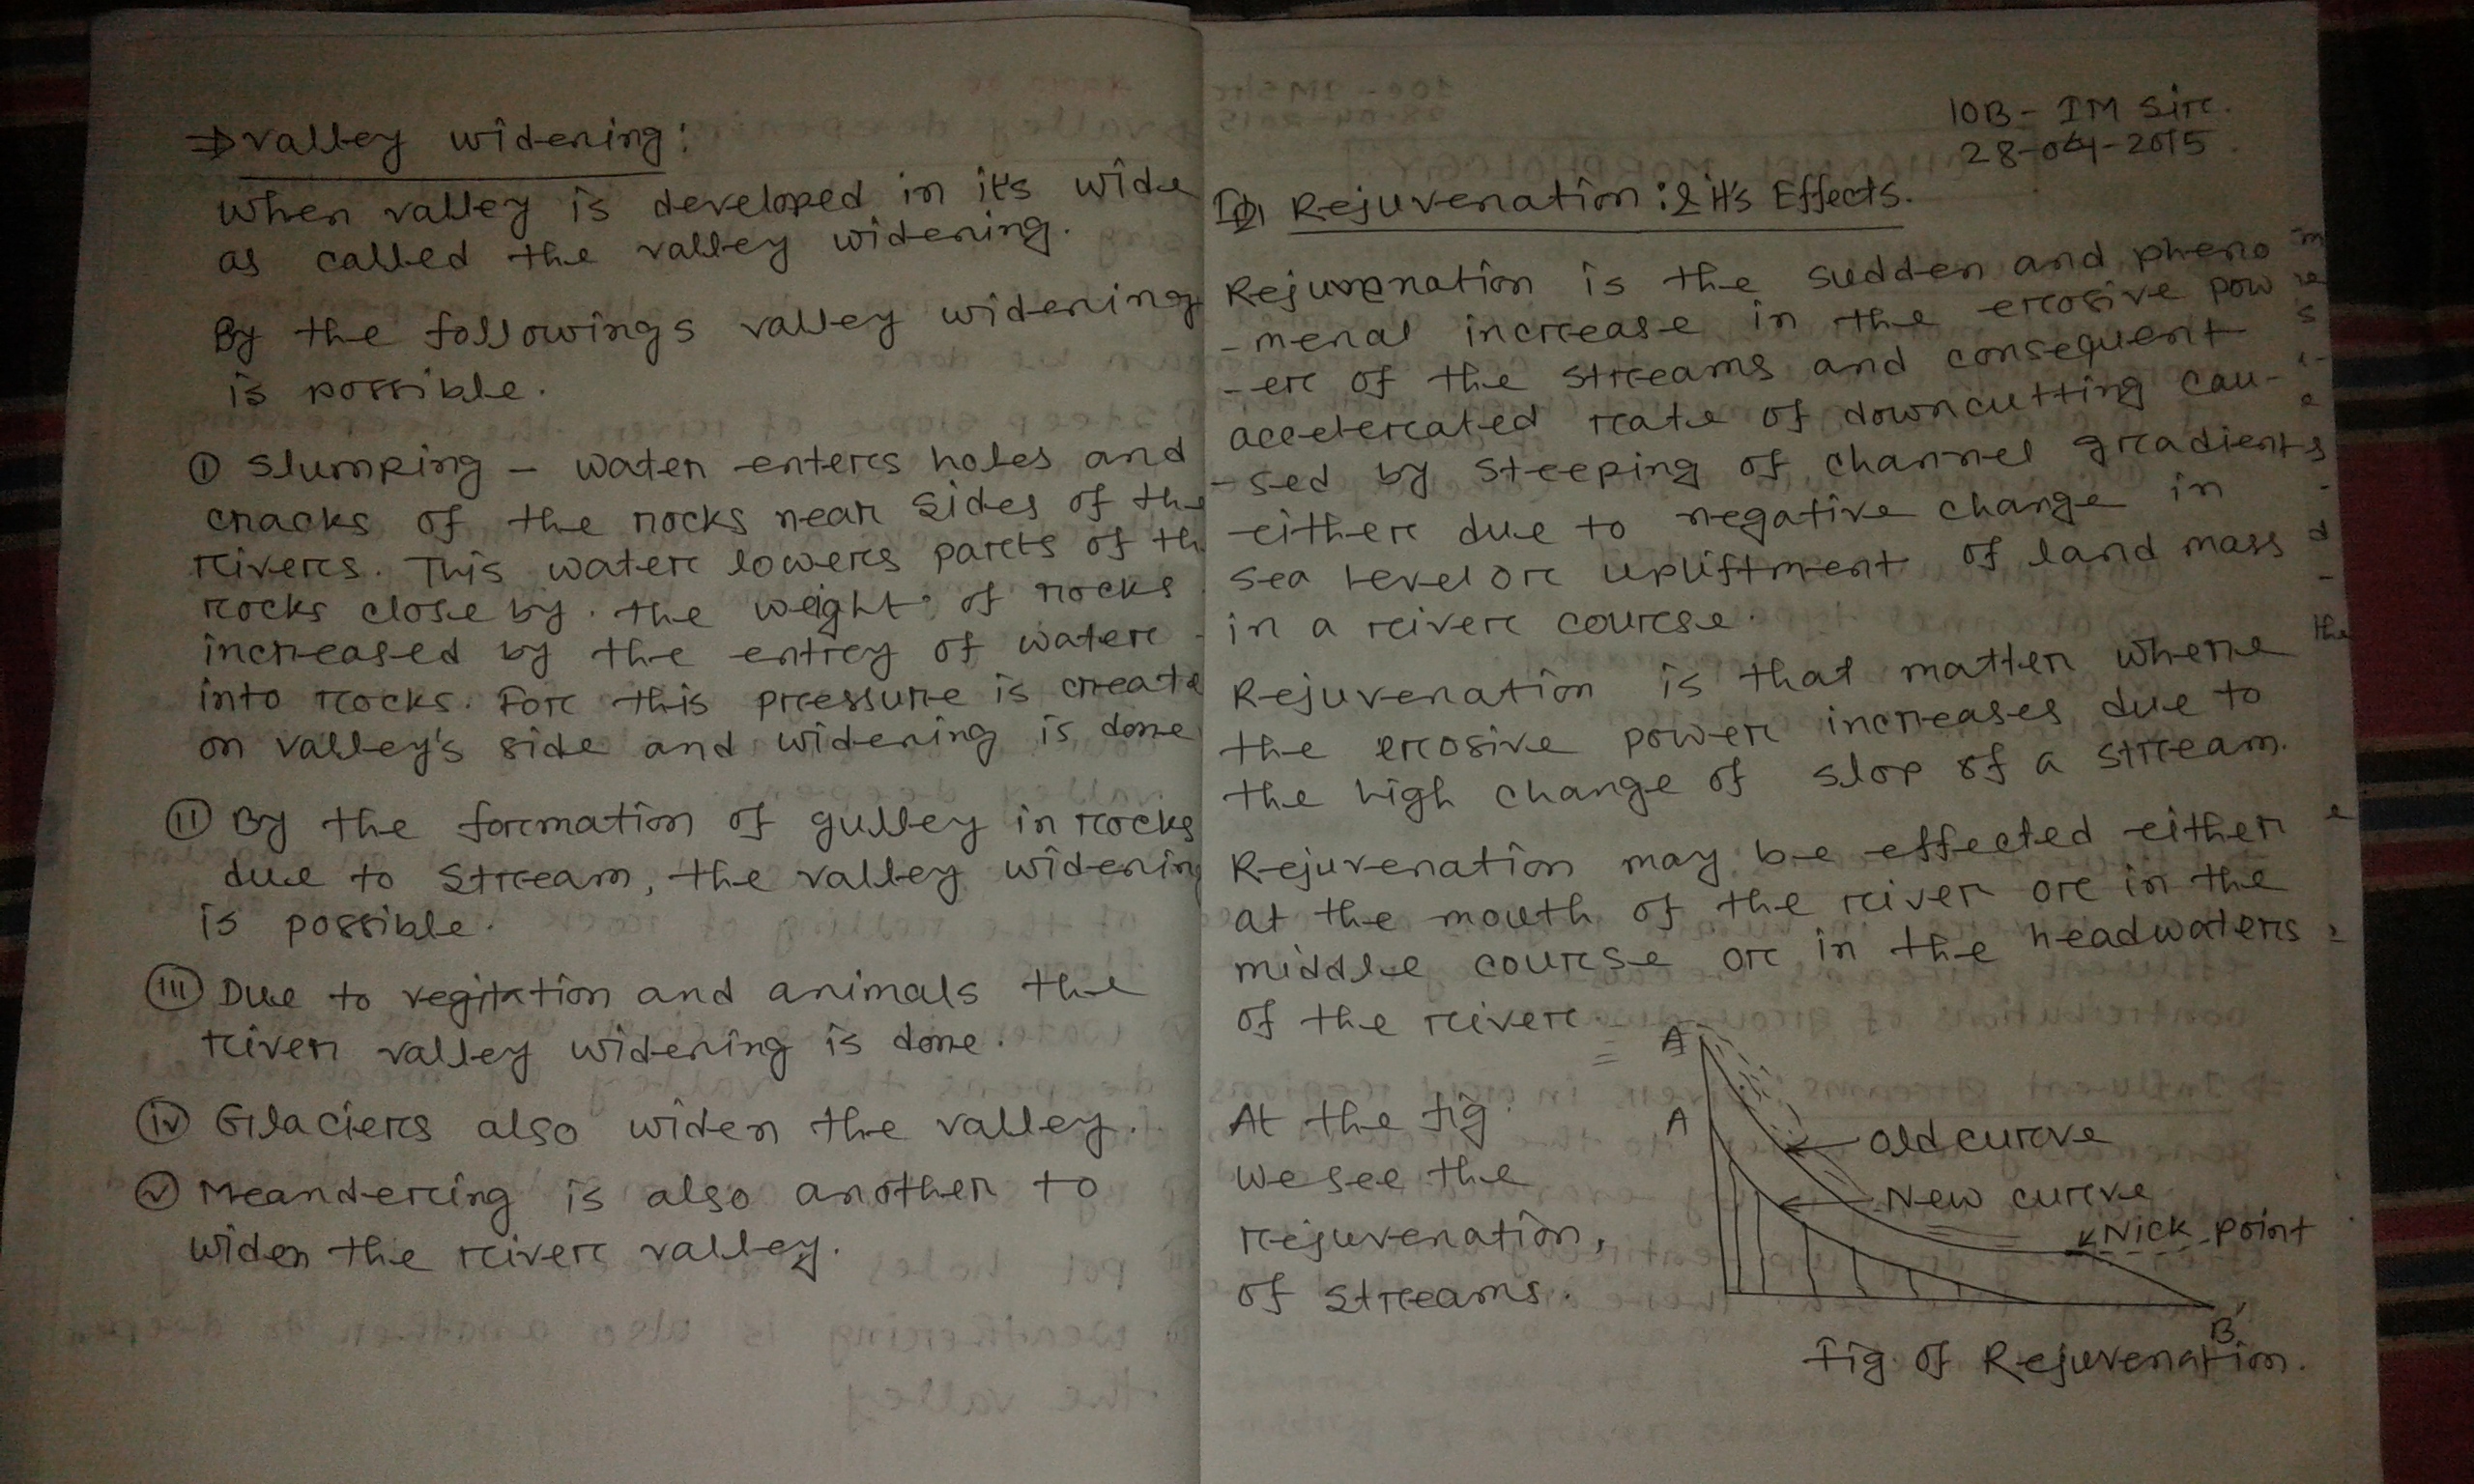 ⇒ Valley widening:
When valley is developed in it's wide
as called the valley widening.
By the followings valley widening
is possible.
① Slumping – Water enters holes and
cracks of the rocks near sides of the
rivers. This water lowers parts of th
rocks close by. the weight of rocks
increased by the entry of water
into rocks. For this pressure is create
on valley's side and widening is done
② By the formation of gulley in rocks
due to stream, the valley widening
is possible.
③ Due to vegitation and animals the
river valley widening is done.
④ Glaciers also widen the valley.
⑤ Meandering is also another to
widen the river valley.
10B – IM Sir.
28-04-2015
Rejuvenation: & it's Effects.
Rejuvenation is the sudden and pheno
-menal increase in the erosive pow
-er of the streams and consequent
accelerated rate of downcutting cau-
-sed by steeping of channel gradients
either due to negative change in
sea level or upliftment of land mass
in a river course.
Rejuvenation is that matter where the
the erosive power increases due to
the high change of slop of a stream.
Rejuvenation may be effected either
at the mouth of the river or in the
middle course or in the headwaters
of the river.
At the fig.
we see the
rejuvenation,
of streams.
A'
A
Old curve
New curve
Nick point
B'
Fig of Rejuvenation.